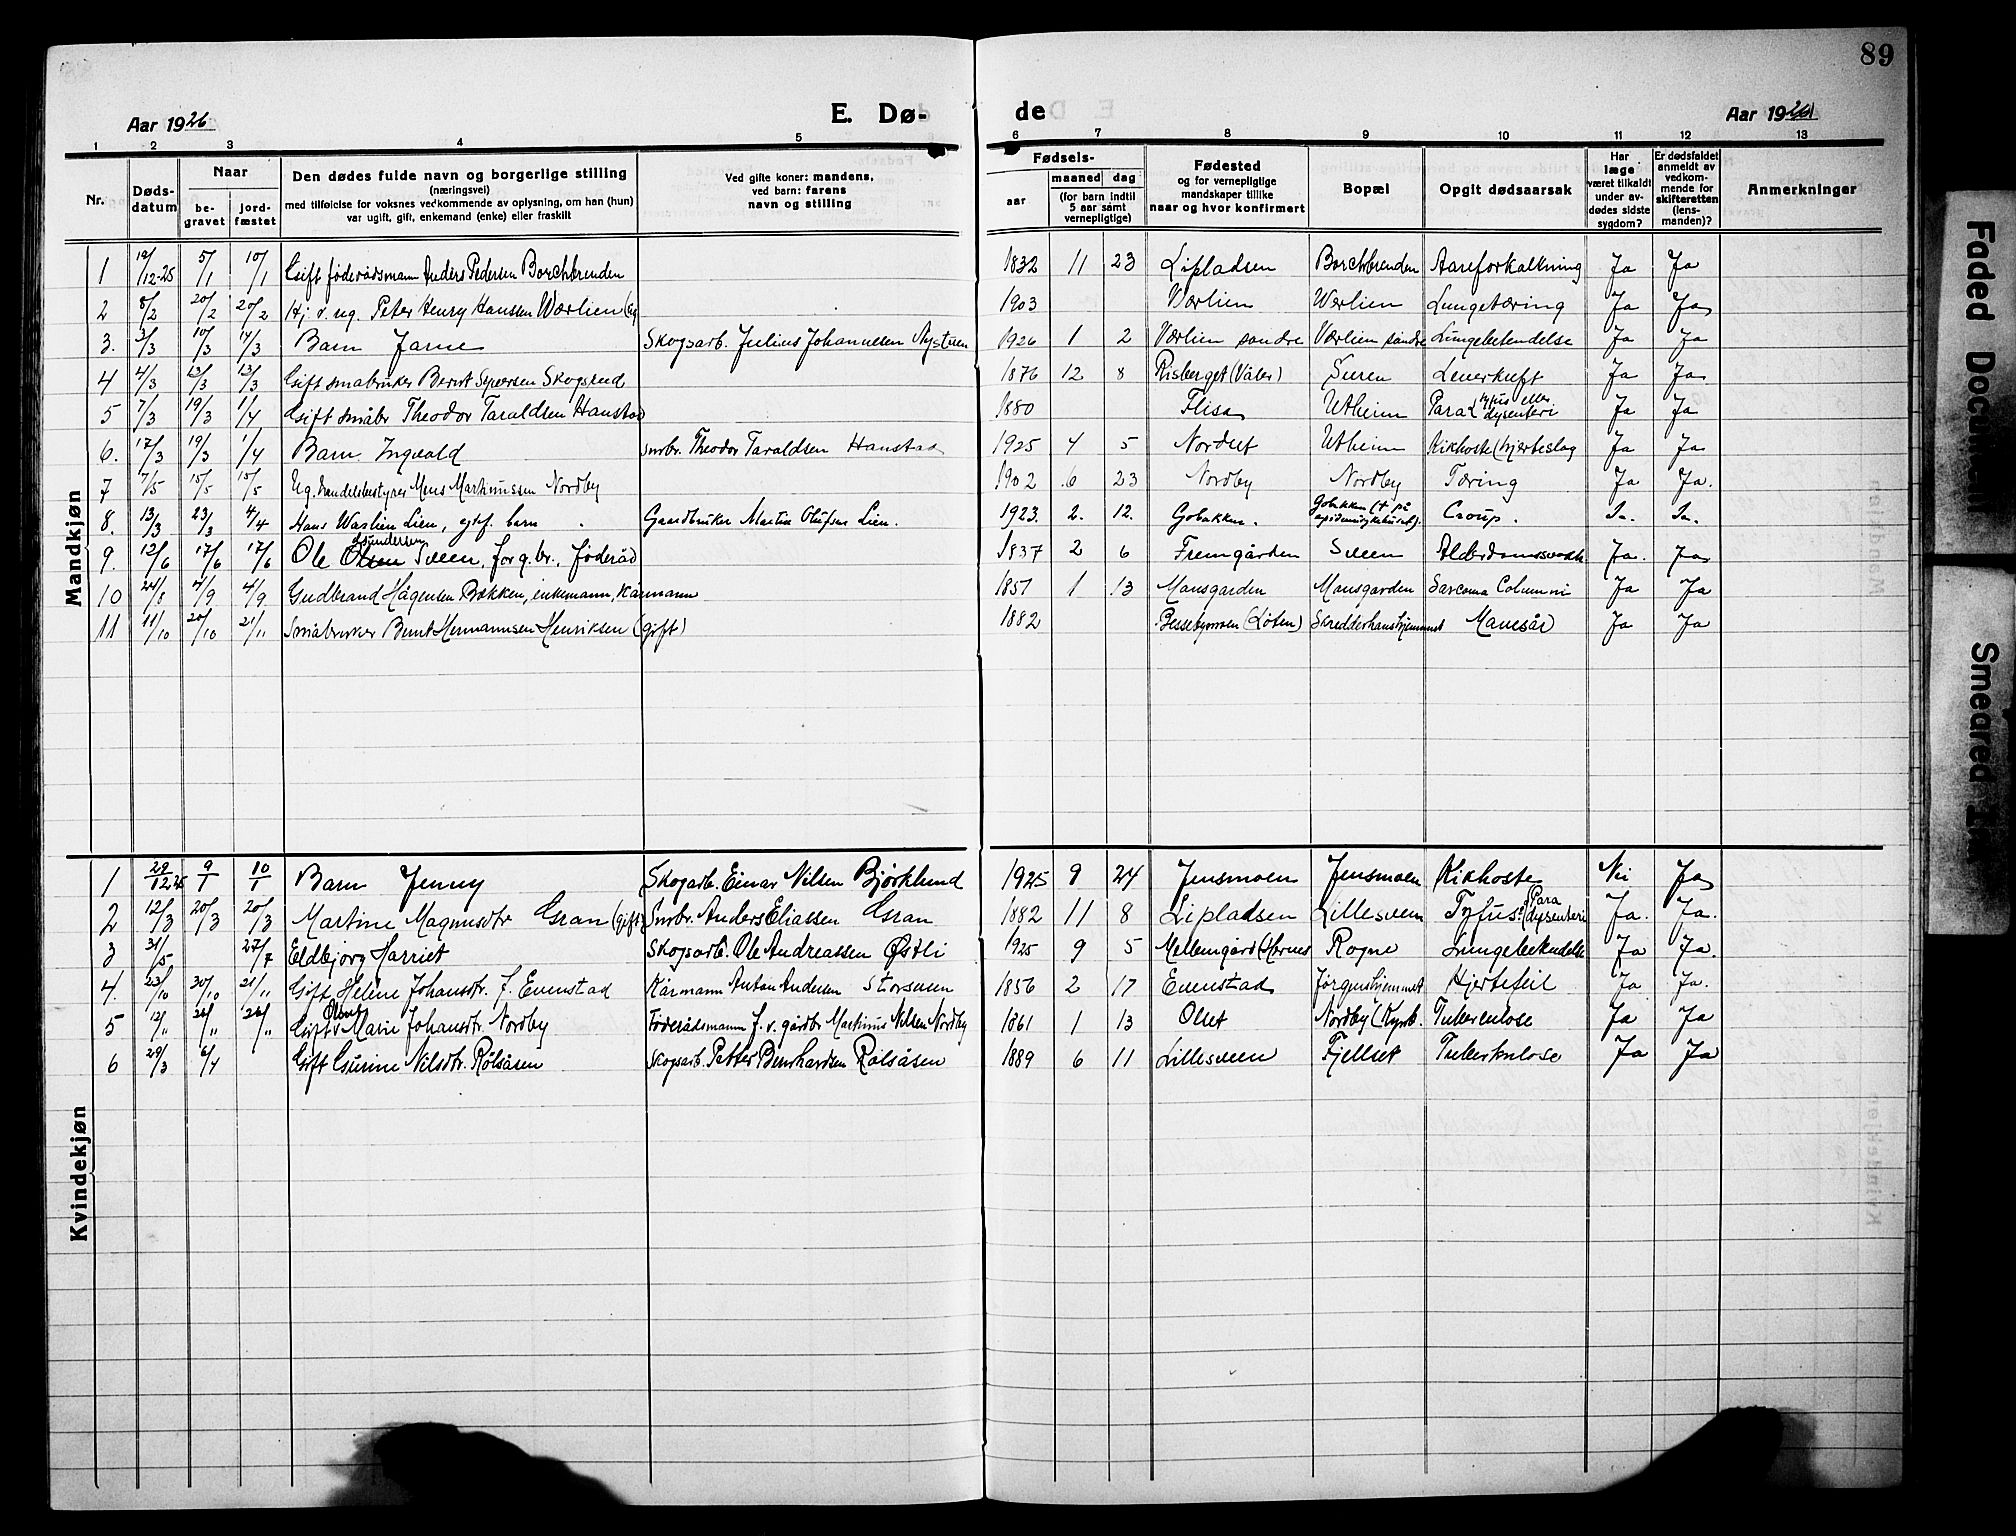 89
Aar 1926 E. Dø- de Aar 1926
1 2 3 4 5 6 7 8 9 10 11 12 13
Nr. Døds-datum Naar be-gravet jord-fæstet Den dødes fulde navn og borgerlige stilling (næringsvei) med tilføielse for voksnes vedkommende av oplysning, om han (hun) var ugift, gift, enkemand (enke) eller fraskilt Ved gifte koner: mandens, ved barn: farens navn og stilling Fødsels- aar maaned dag (for barn indtil 5 aar samt vernepligtige) Fødested og for vernepligtige mandskaper tillike naar og hvor konfirmert Bopæl Opgit dødsaarsak Har læge været tilkaldt under av-dødes sidste sygdom? Er dødsfaldet anmeldt av vedkom-mende for skifteretten (lens-manden)? Anmerkninger
Mandkjøn
1 19/12-25 5/1 10/1 Gift føderådsmann Anders Pedersen Borchbrenden 1832 11 23 Lipladsen Borchbrenden Aareforkalkning Ja Ja
2 8/2 20/2 20/2 Hj. v. ug. Peter Henry Hanssen Wærlien 1903 Værlien Wærlien Lungetæring Ja Ja
3. 3/3 10/3 14/3 Barn Jarne Skogsarb. Julius Johannesen Nystuen 1926 1 2 Værlien søndre Værlien søndre Lungebetendelse Ja Ja
4 4/3 13/3 13/3 Gift småbruker Bernt Syversen Skogsrud 1876 12 8 Risberget (Våler) Sveen Ja Ja
5 7/3 19/3 1/4 Gift småbr. Theodor Taraldsen Hanstad 1880 Flisa Utheim Para tyfus eller dysenteri Ja Ja
6. 17/3 19/3 1/4 Barn Ingvald Smbr. Theodor Taraldsen Hanstad 1925 4 5 Nordset Utheim Kikhoste (hjerteslag Ja Ja
7 7/5 15/5 15/5 Ug. handelsbestyrer Mons Martinussen Nordby 1902 6 23 Nordby Nordby Tæring Ja Ja.
8. 13/3 23/3 4/4 Hans Wærlien Lien, egtef. barn Gaardbruker Martin Olufsen Lien. 1923. 2. 12. Gobakken. Gobakken († på epidemisykehuset). Croup. Ja. Ja.
9. 12/6 17/6 17/6 Ole Sveen, forg. br., føderåd 1837 2 6 Fremgården Sveen Alderdomssvakh. Ja. Ja
10 24/8 4/9 4/9 Gudbrand Hågensen Bækken, enkemann, kårmann 1851 1 13 Monsgarden Monsgarden Sarcoma Ja Ja
11 11/10 20/10 21/11 Småbruker Bernt Hermannsen Henriksen (gift) 1882 (Løten) Skredderhanshjemmet Mavesår Ja Ja
Kvindekjøn
1 29/12 25 9/1 10/1 Barn Jenny Skogarb. Einar Nilsen Bjørklund 1925 9 24 Jensmoen Jensmoen Kikhoste Nei Ja
2 12/3 20/3 20/3 Martine Magnusdtr Gran (gift) Smbr. Anders Eliassen Gran 1882 11 8 Lipladsen Lillesveen Tyfus (Para dysenteri Ja. Ja.
3 31/5 27/7 Eldbjørg Harriet Skogsarb. Ole Andreassen Østli 1925 9 5 Mellemgård (Hernes Rogne Lungebetendelse Ja Ja.
4. 23/10 30/10 21/11 Gift Helene Johansdtr. f. Evenstad Kårmann Anton Andersen Storsveen 1856 2 17 Evenstad Jørgenshjemmet Hjertefeil Ja Ja.
5 12/11 26/11 26/11 Gift Marie Johansdtr. Nordby Føderådsmann f.v. gårdbr Martinus Nilsen Nordby 1861 1 13 Olset Nordby (Kynb. Tuberculose Ja Ja
6 29/3 6/4 Gift Gurine Nilsdtr. Rølsåsen Skogsarb. Petter Bernhardsen Rølsåsen 1889 6 11 Lillesveen Fjellset Tuberkulose Ja Ja
Faded Document
Smeared